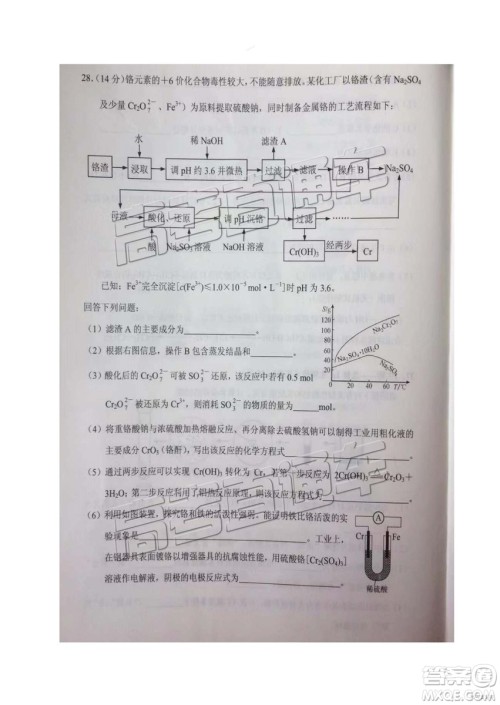 28.(14分)铬元素的+6价化合物毒性较大,不能随意排放。某化工厂以铬渣(含有Na₂SO₄
及少量Cr₂O₇²⁻、Fe³⁺)为原料提取硫酸钠,同时制备金属铬的工艺流程如下:
水 稀NaOH 滤渣A
铬渣 浸取 调pH约3.6并微热 过滤 滤液 操作B Na₂SO₄
母液 酸化、还原 调pH沉铬 过滤
酸 Na₂SO₃溶液 NaOH溶液 Cr(OH)₃ 经两步 Cr
已知:Fe³⁺完全沉淀[c(Fe³⁺)≤1.0×10⁻⁵mol·L⁻¹]时pH为3.6。
回答下列问题:
(1)滤渣A的主要成分为
(2)根据右图信息,操作B包含蒸发结晶和
(3)酸化后的Cr₂O₇²⁻可被SO₃²⁻还原,该反应中若有0.5mol
Cr₂O₇²⁻被还原为Cr³⁺,则消耗SO₃²⁻的物质的量为
S/g
140
120
100
80
60
40
20
0
20
60
T/℃
Na₂Cr₂O₇
Na₂SO₄·10H₂O
(4)将重铬酸钠与浓硫酸加热熔融反应,分离出硫酸氢钠可以制得工业上用粗化液的
主要成分CrO₃(铬酐),写出该反应的化学方程式
(5)通过两步反应可以实现Cr(OH)₃转化为Cr,若第一步反应为2Cr(OH)₃ Cr₂O₃+
3H₂O;第二步反应利用铝热反应,则该反应的化学方程式为
(6)利用如图装置,探究铬和铁的活泼性强弱,能证明铁比铬活泼的实
验现象是 。工业上,
在钢器具表面镀铬以增强器具的抗腐蚀性能,用硫酸铬[Cr₂(SO₄)₃]
溶液作电解液,阴极的电极反应式为
A
Cr
Fe
稀硫酸
高考直通车
答案圈
MXQE.COM